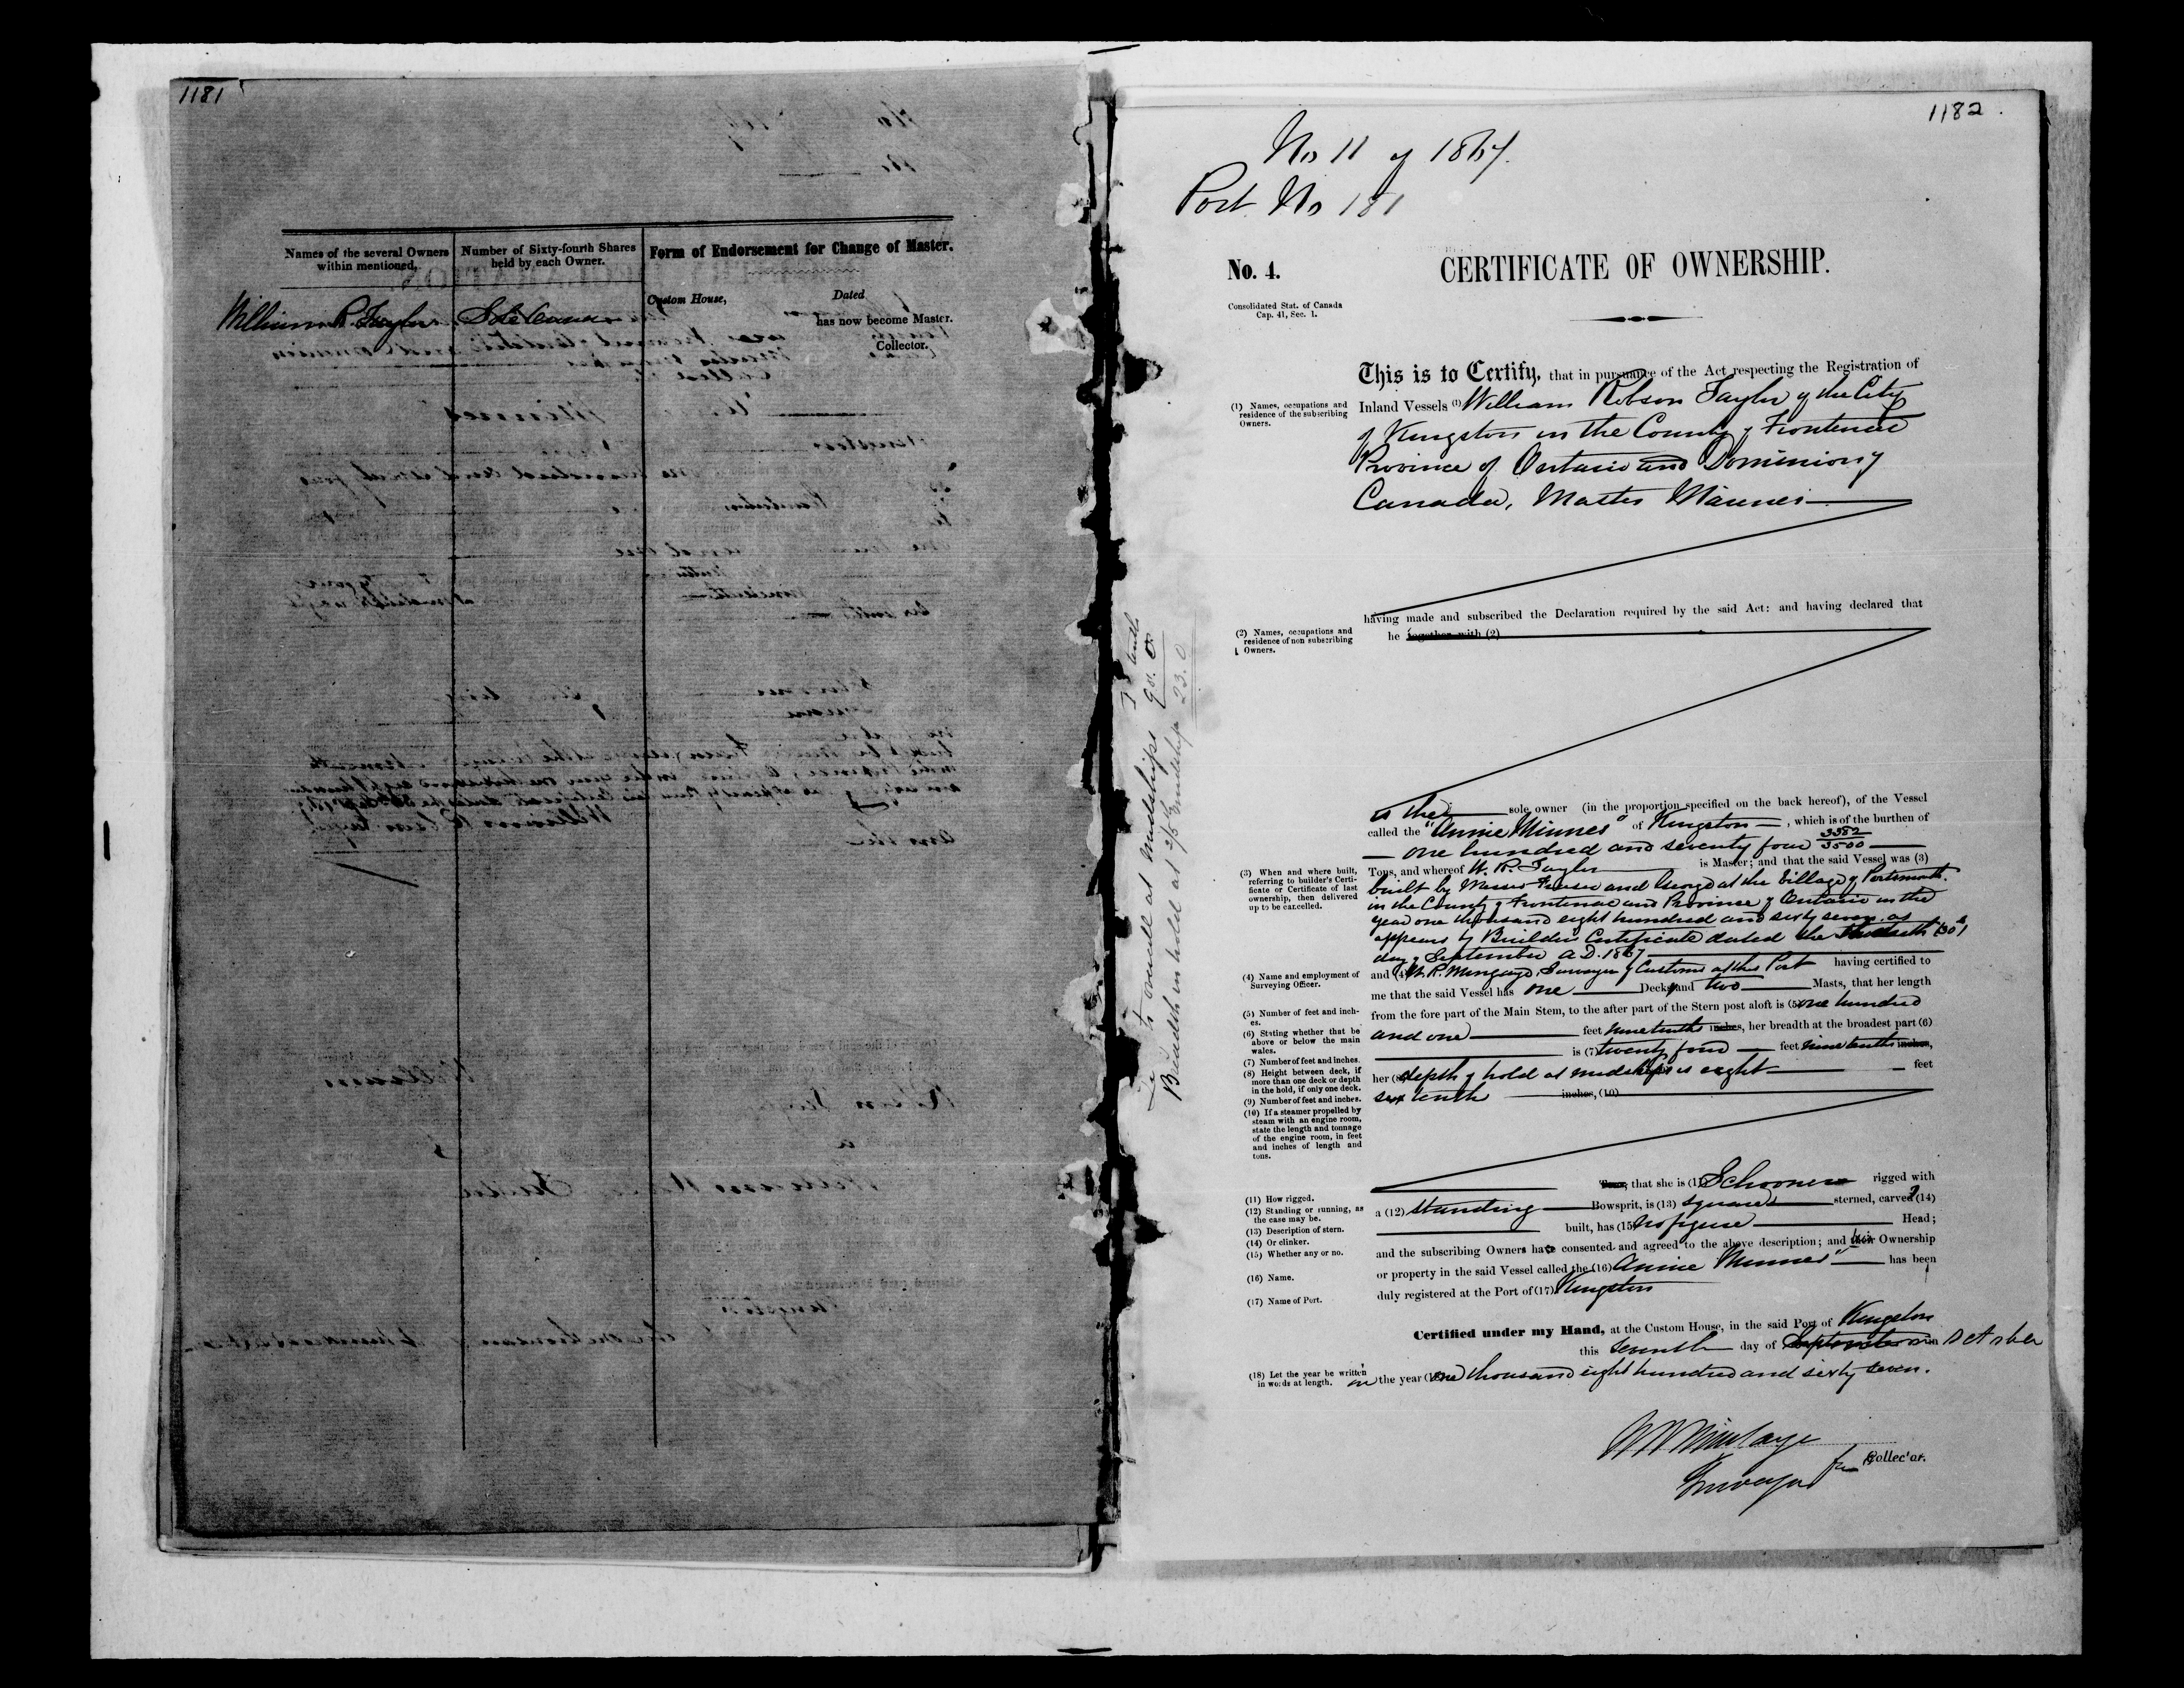 1181
Names of the several Owners
within mentioned,
Number of Sixty-fourth Shares
held by each Owner.
Form of Endorsement for Change of Master.
William R. Taylor
Sole Owner
Custom House,
Dated
has now become Master.
Collector.
1182.
No 11 of 1867.
Port No 181
No. 4.
CERTIFICATE OF OWNERSHIP.
Consolidated Stat. of Canada
Cap. 41, Sec. 1.
This is to Certify, that in pursuance of the Act respecting the Registration of
(1) Names, occupations and
residence of the subscribing
Owners.
Inland Vessels (1) William Robson Taylor of the City
of Kingston in the County of Frontenac
Province of Ontario and Dominion of
Canada, Master Mariner
having made and subscribed the Declaration required by the said Act: and having declared that
(2) Names, occupations and
residence of non subscribing
Owners.
he together with (2)
is the sole owner (in the proportion specified on the back hereof), of the Vessel
called the "Annie Minnes" of Kingston, which is of the burthen of
one hundred and seventy four 3382/3500
Tons, and whereof W. R. Taylor is Master; and that the said Vessel was (3)
(3) When and where built,
referring to builder's Certi-
ficate or Certificate of last
ownership, then delivered
up to be cancelled.
built by Messrs and George at the Village of Portsmouth
in the County of Frontenac and Province of Ontario in the
year one thousand eight hundred and sixty seven. as
appears by Builders Certificate dated the thirtieth (30th)
day of September A.D. 1867
(4) Name and employment of
Surveying Officer.
and (4) W. R. Mingaye, Surveyor of Customs at this Port having certified to
me that the said Vessel has one Deck and two Masts, that her length
(5) Number of feet and inch-
es.
from the fore part of the Main Stem, to the after part of the Stern post aloft is (5) one hundred
(6) Stating whether that be
above or below the main
wales.
and one feet nine tenths inches, her breadth at the broadest part (6)
(7) Number of feet and inches.
is (7) twenty four feet nine tenths inches,
(8) Height between deck, if
more than one deck or depth
in the hold, if only one deck.
her (8) depth of hold at midships is eight feet
(9) Number of feet and inches.
six tenths inches, (10)
(10) If a steamer propelled by
steam with an engine room,
state the length and tonnage
of the engine room, in feet
and inches of length and
tons.
Tons; that she is (11) Schooner rigged with
(11) How rigged.
(12) Standing or running, as
the case may be.
a (12) standing Bowsprit, is (13) square sterned, carvel (14)
(13) Description of stern.
(14) Or clinker.
built, has (15) no figure Head;
(15) Whether any or no.
and the subscribing Owners have consented and agreed to the above description; and their his Ownership
(16) Name.
or property in the said Vessel called the (16) Annie Minnes" has been
(17) Name of Port.
duly registered at the Port of (17) Kingston
Certified under my Hand, at the Custom House, in the said Port of Kingston
this seventh day of September October
(18) Let the year be written
in words at length.
in the year (18) one thousand eight hundred and sixty seven.
W R Mingaye
Surveyor for Collector.
at midships
Breadth in hold at 2/5 midships 23.0